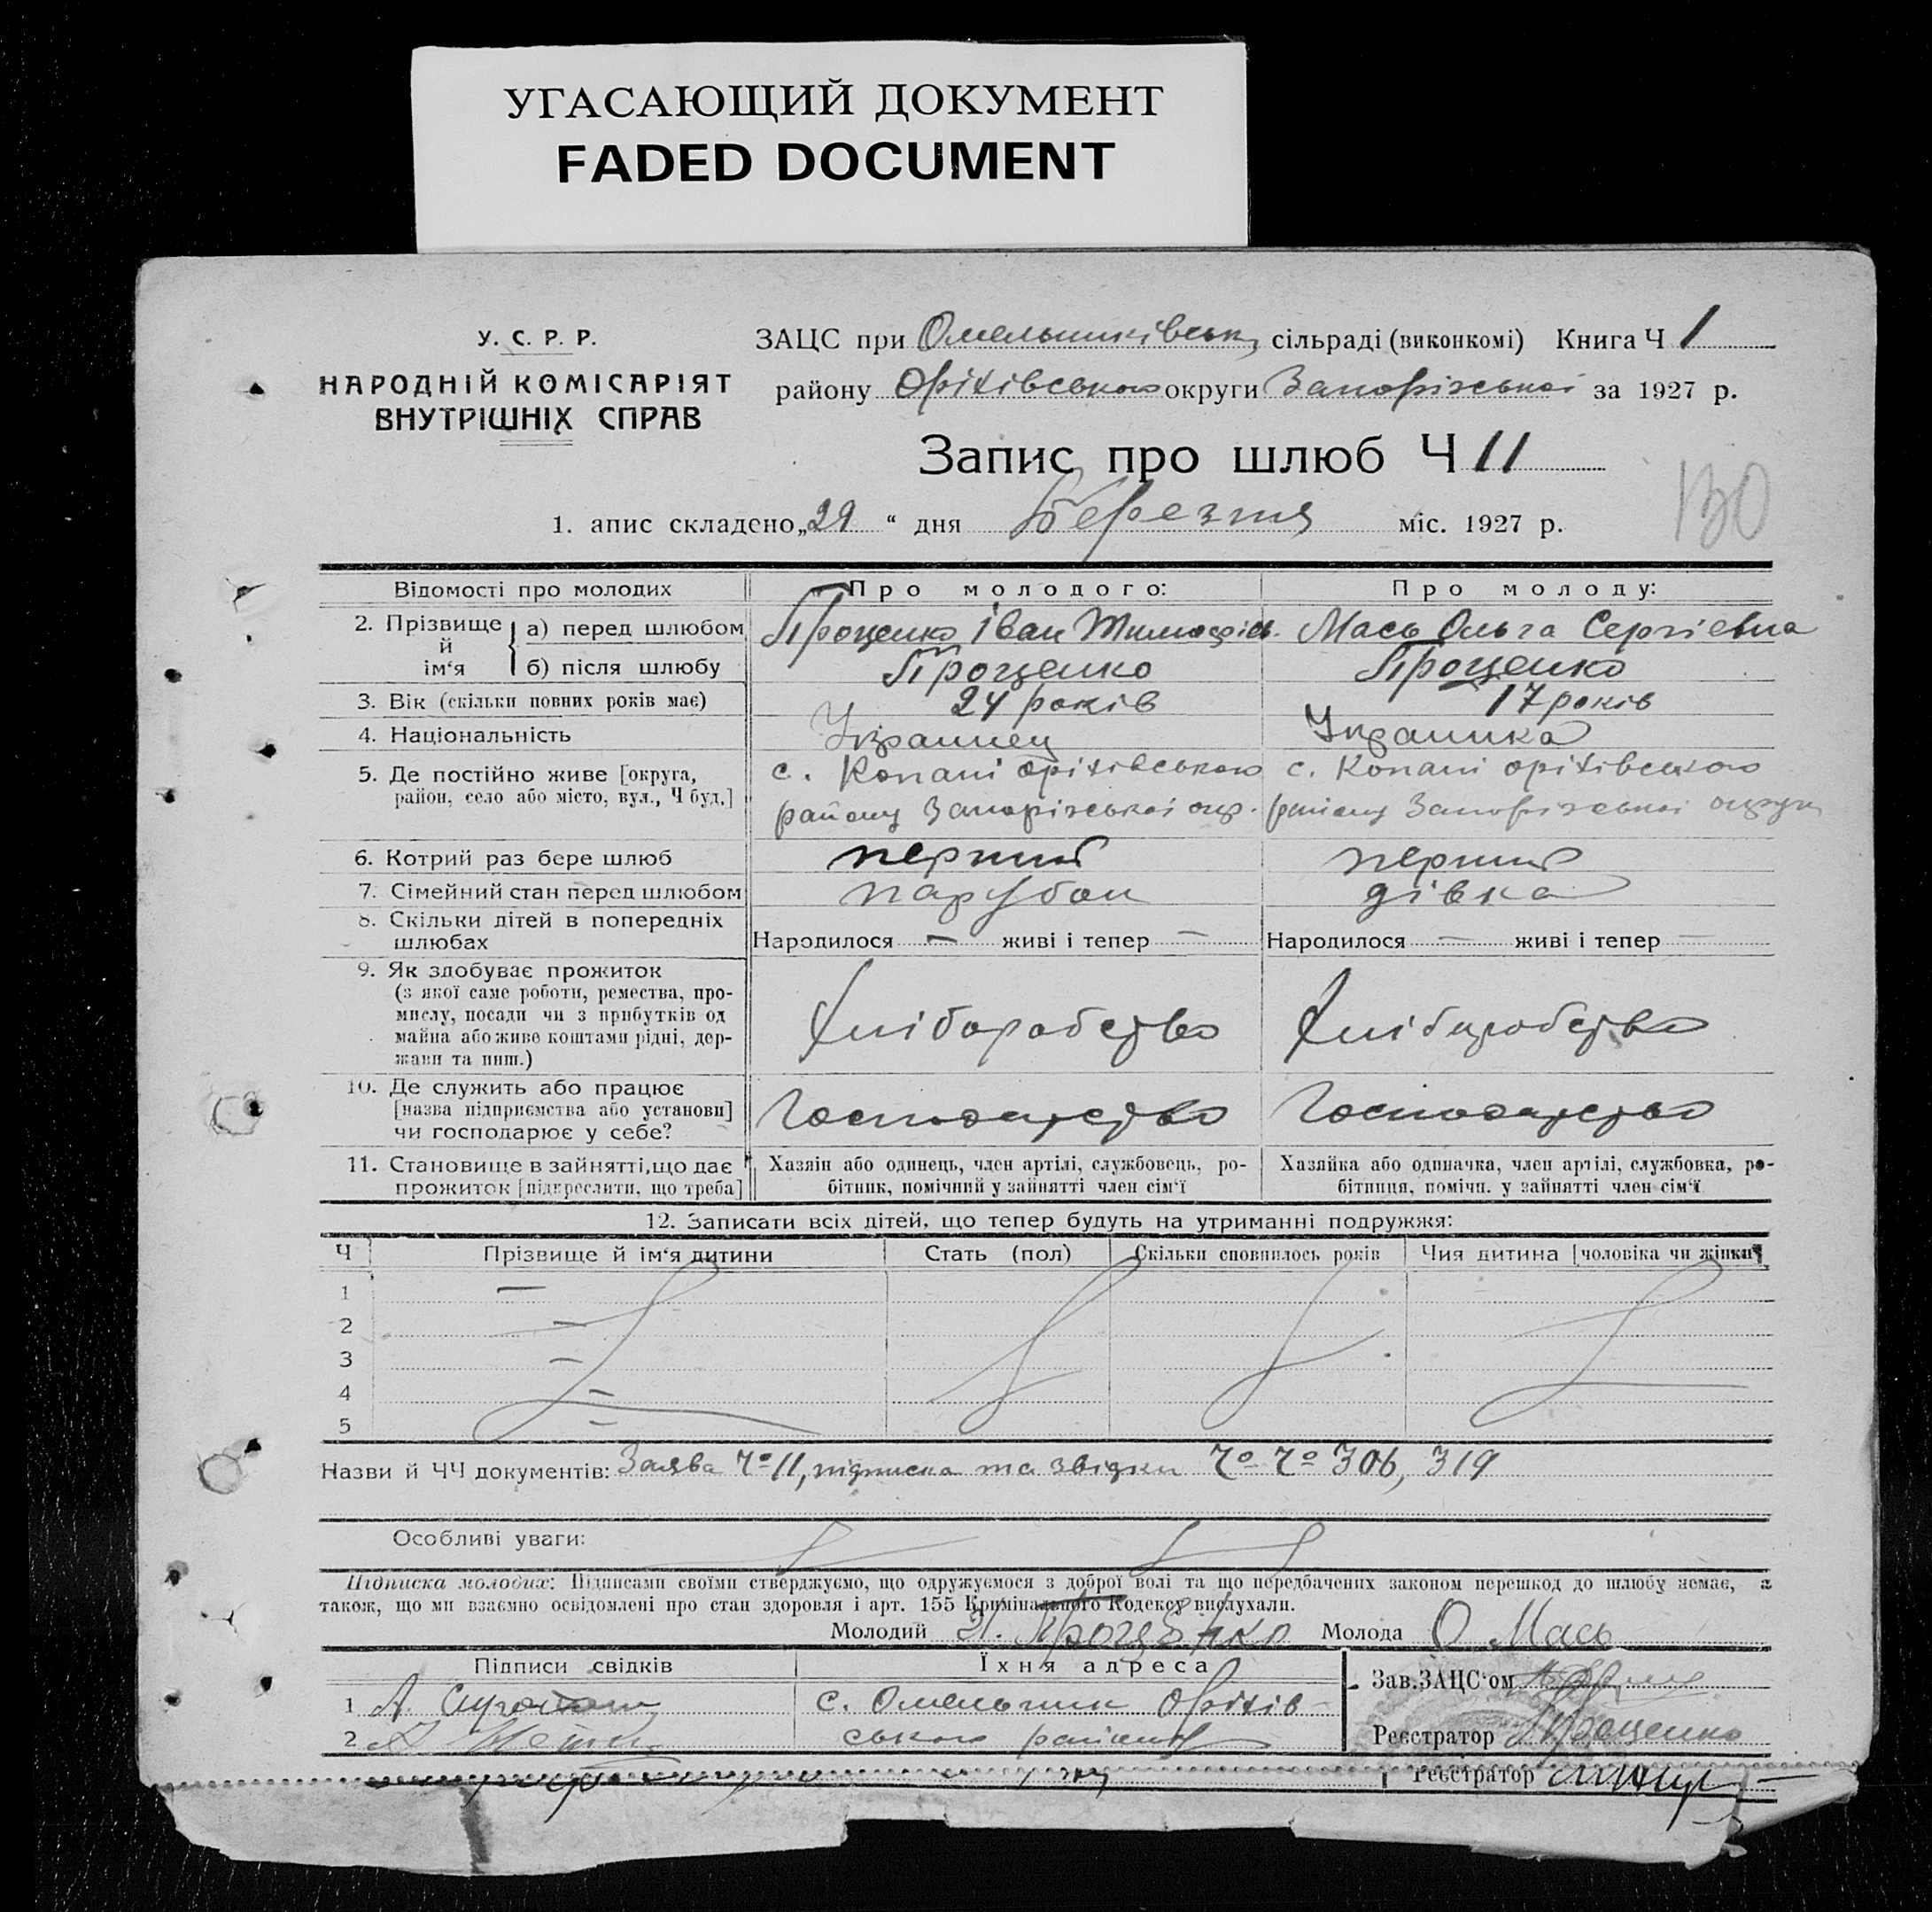 УГАСАЮЩИЙ ДОКУМЕНТ
FADED DOCUMENT
У. С. Р. Р.
НАРОДНІЙ КОМІСАРІЯТ
ВНУТРІШНІХ СПРАВ
ЗАЦС при Омельниківськ сільраді (виконкомі) Книга Ч 1
району Оріхівського округи Запорізької за 1927 р.
Запис про шлюб Ч 11
130
1. апис складено „29“ дня Березня міс. 1927 р.
Відомості про молодих
Про молодого:
Про молоду:
2. Прізвище й ім‘я
а) перед шлюбом
Проценко Іван Тимофієв.
Мась Ольга Сергієвна
б) після шлюбу
Проценко
Проценко
3. Вік (скільки повних років має)
24 років
17 років
4. Національність
Українец
Українка
5. Де постійно живе [округа,
район, село або місто, вул., Ч буд.]
с. Копані оріхівського
району Запорізької окр.
с. Копані оріхівського
району Запорізької округи
6. Котрий раз бере шлюб
перший
перший
7. Сімейний стан перед шлюбом
парубок
дівка
8. Скільки дітей в попередніх
шлюбах
Народилося — живі і тепер —
Народилося — живі і тепер —
9. Як здобуває прожиток
(з якої саме роботи, ремества, про-
мислу, посади чи з прибутків од
майна або живе коштами рідні, дер-
жави та инш.)
Хліборобство
Хліборобство
10. Де служить або працює
[назва підприємства або установи]
чи господарює у себе?
Господарство
Господарство
11. Становище в зайнятті, що дає
прожиток [підкреслити, що треба]
Хазяін або одинець, член артілі, службовець, ро-
бітник, помічний у зайнятті член сім‘ї
Хазяйка або одиначка, член артілі, службовка, ро-
бітниця, помічн. у зайнятті член сім‘ї
12. Записати всіх дітей, що тепер будуть на утриманні подружжя:
Ч
Прізвище й ім‘я дитини
Стать (пол)
Скільки сповнилось років
Чия дитина [чоловіка чи жінки]
1 —
2 —
3 —
4 —
5 —
Назви й ЧЧ документів: Заява Чо 11, підписка та звідки Чо Чо 306, 319
Особливі уваги:
Підписка молодих: Підписами своїми стверджуємо, що одружуємося з доброї волі та що передбачених законом перешкод до шлюбу немає, а
також, що ми взаємно освідомлені про стан здоровля і арт. 155 Кримінального Кодексу вислухали.
Молодий И. Проценко Молода О Мась
Підписи свідків
Їхня адреса
1 А.
с. Омельник Оріхів-
2
ського району
Зав. ЗАЦС‘ом
Реєстратор Проценко
Реєстратор